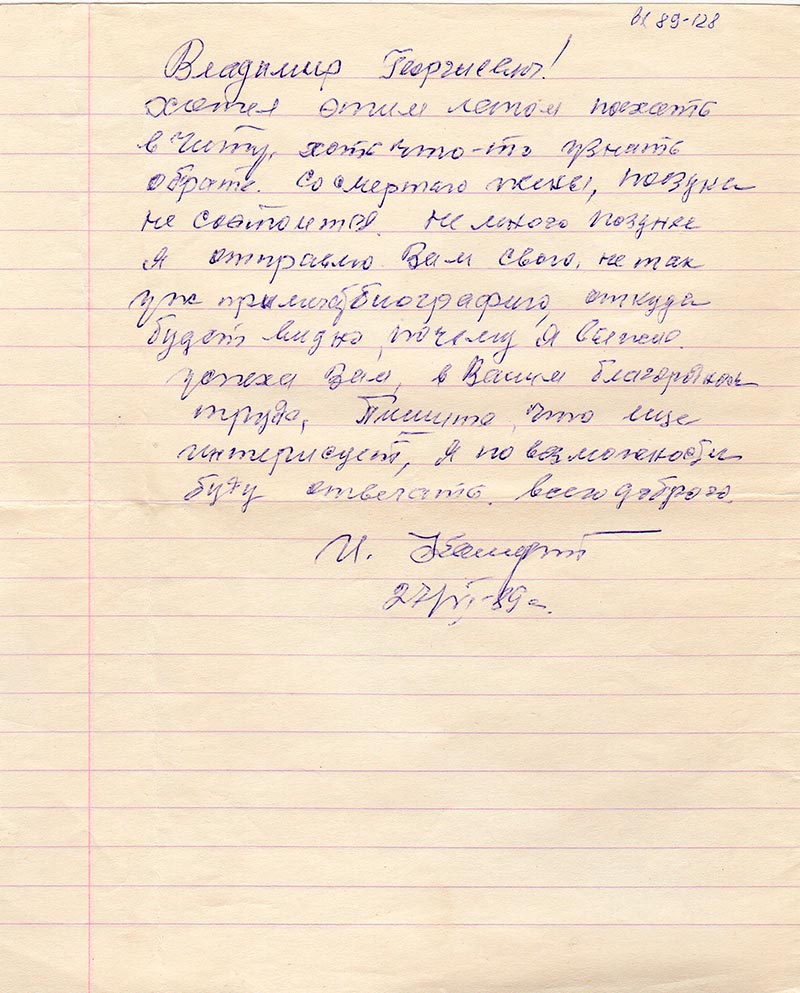 Вх 89-128
Владимир Георгиевич!
хотел этим летом поехать
в Читу, хоть что-то узнать
обрате. Со смертью жены, поездка
не состоится. не много позднее
Я отправлю Вам свою, не так
уж биографию, откуда
будет видно, почему Я выжил.
успеха Вам, в Вашим благородном
труде, Пишите, что еще
интерисует, Я по возможности
буду отвечать. всего доброго.
И.
27/VI-89 г.